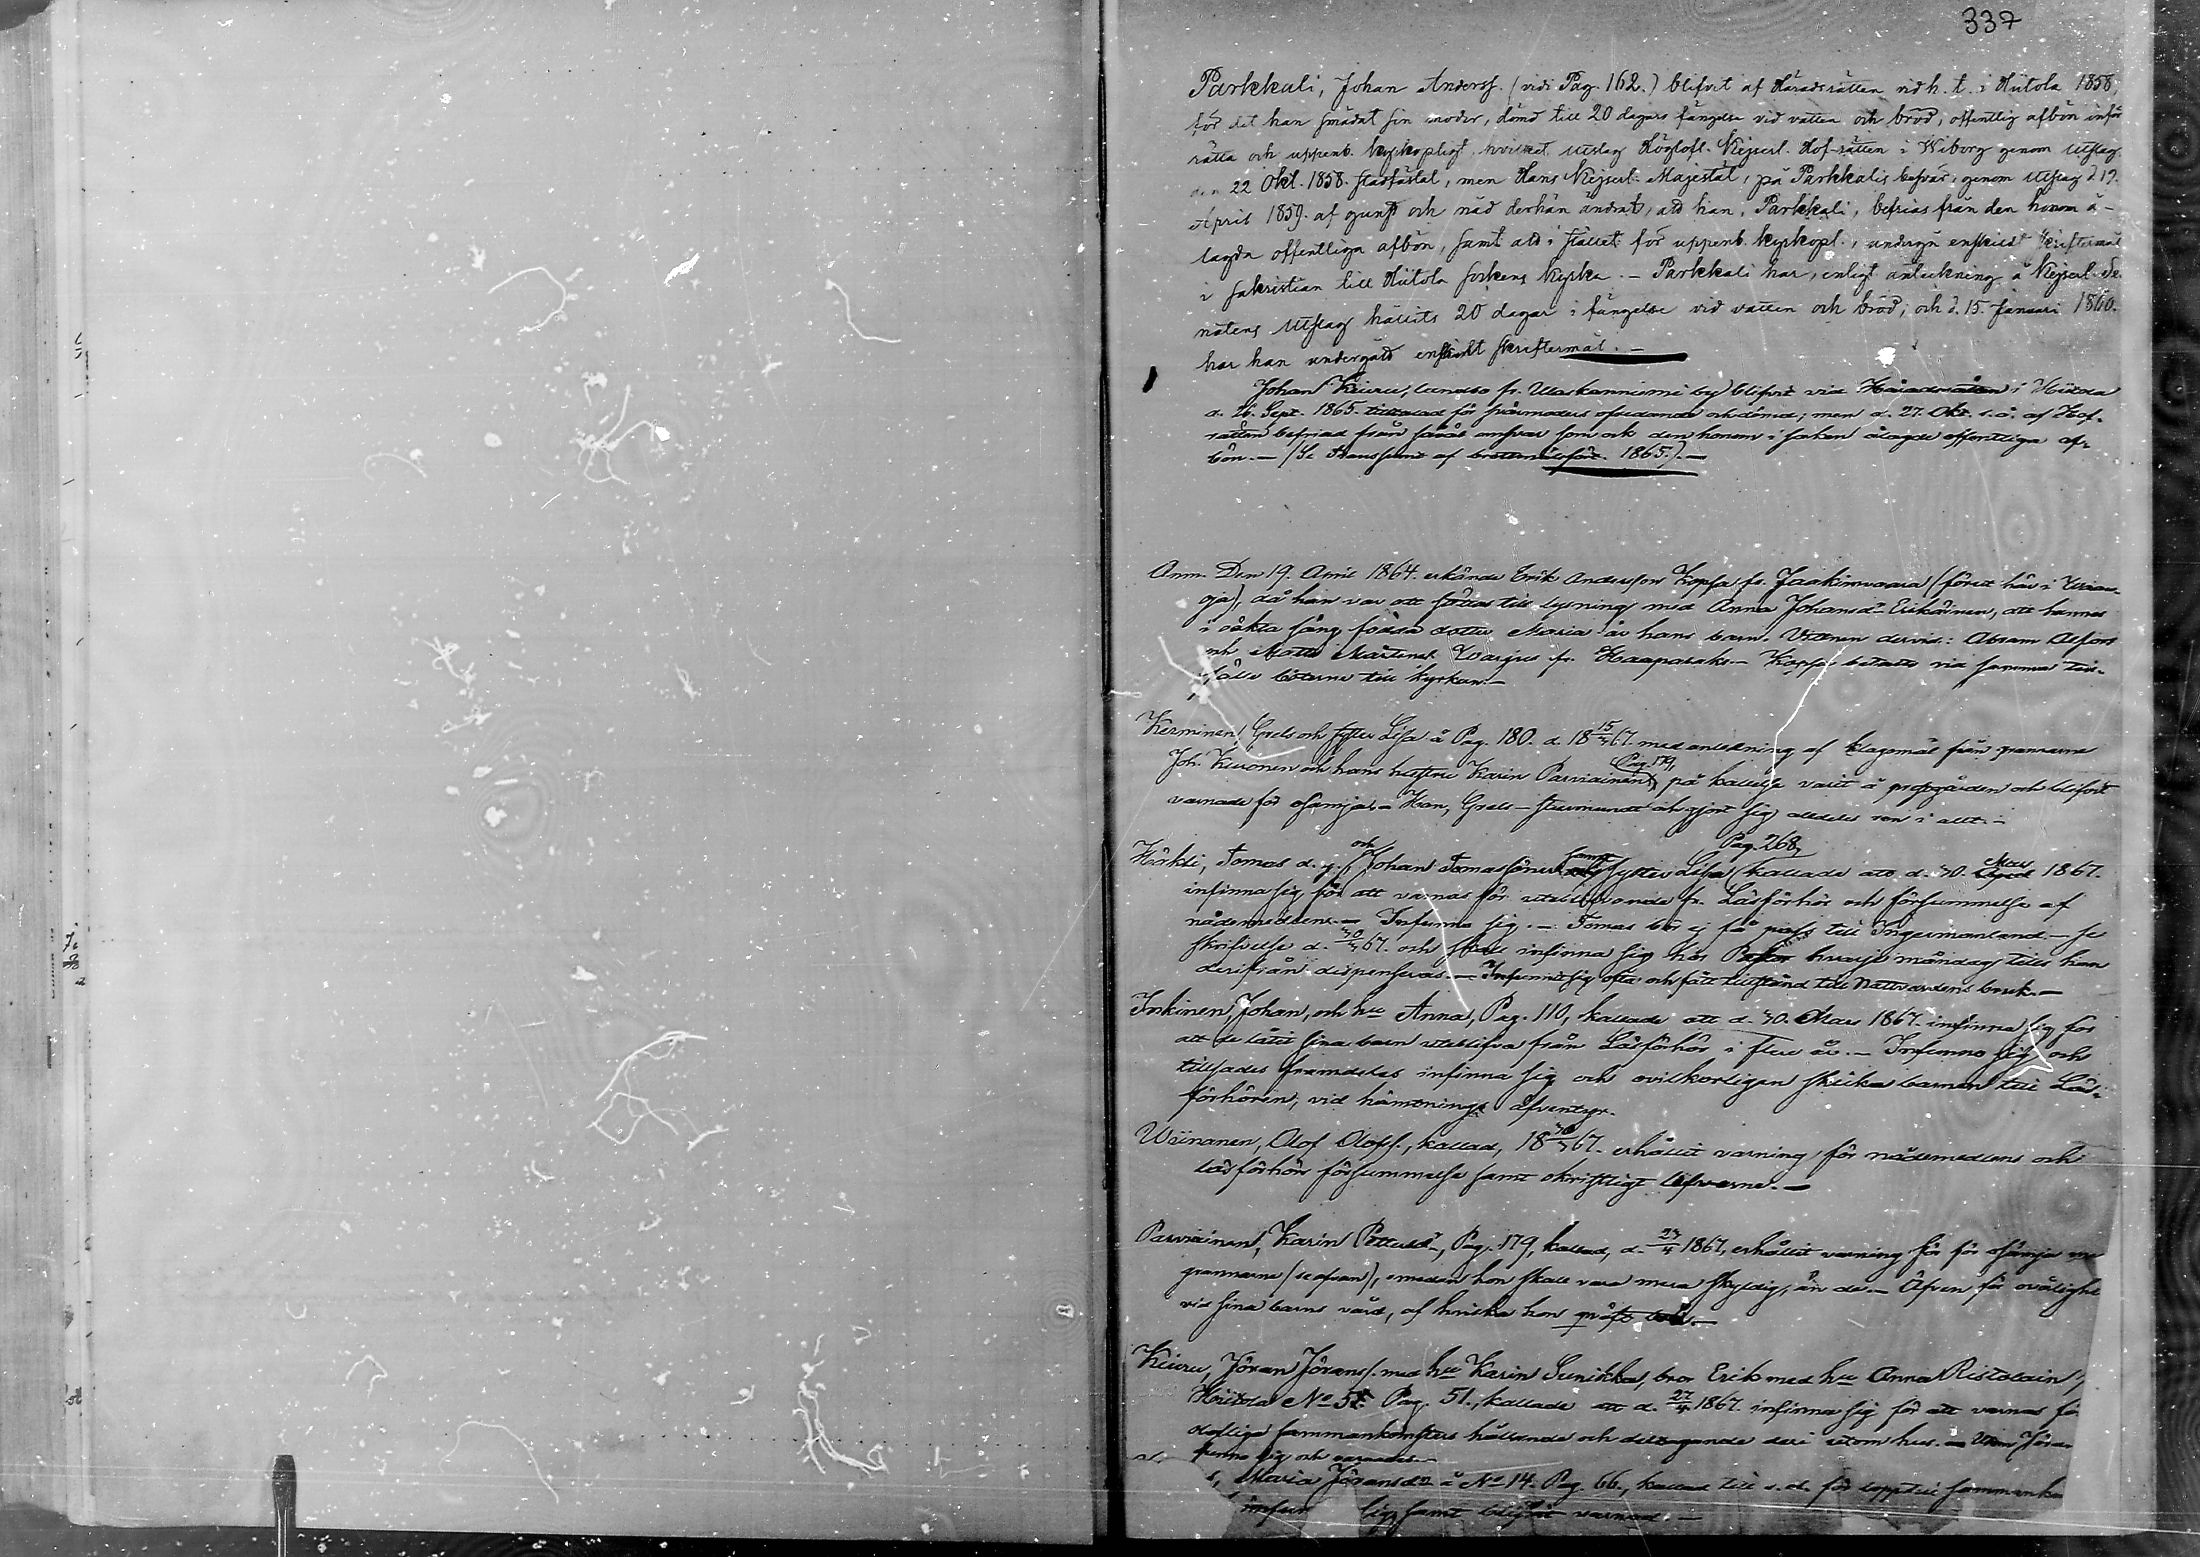 337
Parkkali, Johan Anderss. (vide Pag. 162.) blifvit af Häradsrätten vid h. t. i Hiitola 1858,
för det han smädat sin moder, dömd till 20 dagars fängelse vid vatten och bröd, offentlig afbön inför
rätta och uppenb. kyrkopligt, hvilket utslag Höglofl. Kejserl. Hof-rätten i Wiborg genom Utslag
den 22 Okt. 1858. stadfästat, men Hans Kejserl. Majestät, på Parkkalis besvär, genom Utslag d. 19.
April 1859. af gunst och nåd derhän ändrat, att han, Parkkali, befrias från den honom å-
lagda offentliga afbön, samt att i stället för uppenb. kyrkopl., undergå enskildt skriftermål
i sakristian till Hiitola sockens Kyrka. – Parkkali har, enligt anteckning å Kejserl. Se-
natens Utslag hållits 20 dagar i fängelse vid vatten och bröd, och d. 15. Januari 1860.
har han undergått enskildt skriftermål. –
Johan Kiuru, landbo fr. by blifvit vid Häradsrätten i Hiitola
d. 26. Sept. 1865. tilltalad för svärmoders ofredande och dömd; men d. 27. Okt. s. å. af Hof-
rätten befriad från såväl ansvar som ock den honom i saken ålagde offentliga af-
bön. – (Se Transsumt af 1865.) –
Anm. Den 19. April 1864. erkände Erik Andersson Kopsa fr. Jaakimvaara (förut här i
oja), då han var att till lysning med Anna Johansdr Eskoinen, att hennes
i oäkta säng födda dotter Maria är hans barn. Vittnen dervid: Abram
och Matts Mårtenss. Warjus fr. Haaparaks. – Kopsa betalte vid samma till-
fälle böterne till kyrkan. –
Kerminen, Grels och syster Lisa å Pag. 180. d. 18 15/3 67. med anledning af klagomål från grannarne
Joh. Kiuronen och hans hustru Karin Parviainen, Pag. 179, på kallelse varit å prestgården och blifvit
varnade för osämja. – Han, Grels – och gjort sig alldeles ren i allt. –
Pag. 268,
Härkki, Tomas d. y. och Johan Tomassöner samt syster Lisa kallade att d. 30. Mars 1867.
infinna sig för att varnas för uteblifvande fr. Läsförhör och försummelse af
nådemedlene. – Infunno sig. – Tomas bör ej få pass till Ingermanland – se
skrifvelse d. 30/3 67. och skall infinna sig hos Pastor hvarje måndag tills han
derifrån dispenseras. – Infunnit sig ofta och fått tillstånd till Nattvardens bruk. –
Inkinen, Johan, och hu Anna, Pag. 110, kallade att d. 30. Mars 1867. infinna sig för
att de låtit sina barn uteblifva från Läsförhör i flere år. – Infunno sig och
tillsades framdeles infinna sig och ovilkorligen skicka barnen till Läs-
förhören, vid hämtnings äfventyr.
Wiinanen, Olof Olofss., kallad, 18 30/3 67. erhållit varning för nådemedlens och
läsförhörs försummelse samt okristligt lefverne. –
Parviainen, Karin Pettersdr, Pag. 179, kallad, d. 27/4 1867, erhållit varning för osämja
grannarne (se ofvan), emedan hon skall vara mera skyldig, än de. – Äfven för ovårlighet
vid sina barns vård, af hvilka hon qväft två. –
Kiuru, Jöran Jöranss. med hu Karin Sunikka, bror Erik med hu Anna Ristolain,
Hiitola No 5. Pag. 51., kallade att d. 27/4 1867. infinna sig för att varnas för
olofliga sammankomsters hållande och deltagande deri utom hus. –
funno sig och varnades. –
Maria Jöransdr å No 14. Pag. 66., kallad till s. d. för sammanko
sig, samt blifvit varnad. –